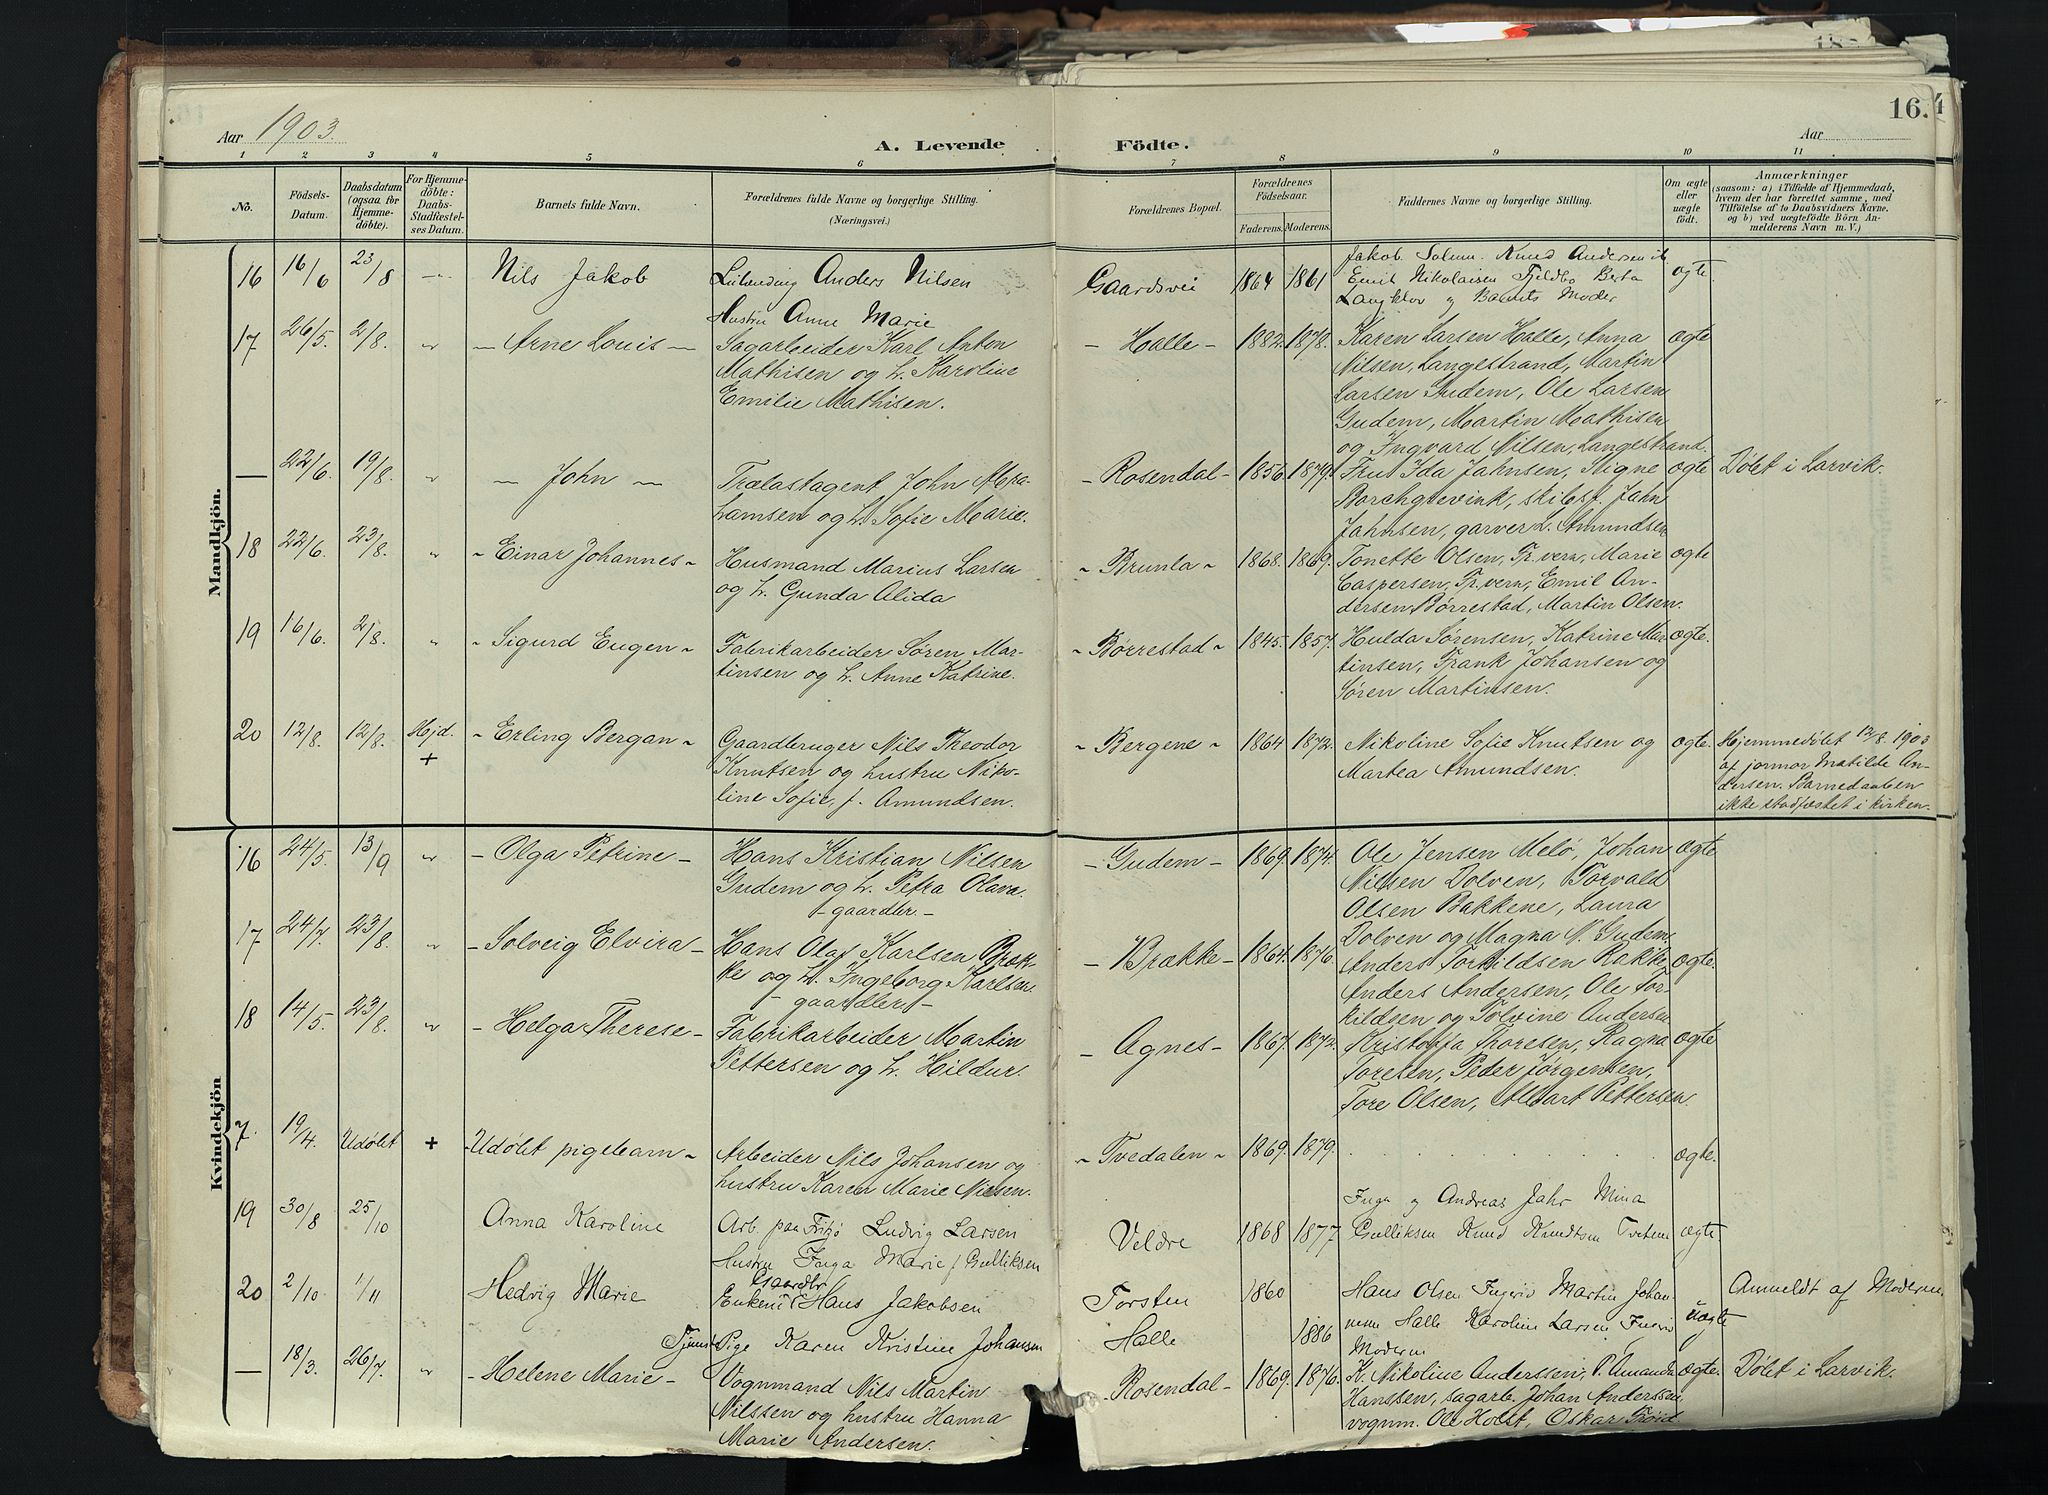 Aar 1903.
A. Levende Födte.
16.
Aar
1 2 3 4 5 6 7 8 9 10 11
No.
Födsels-
Datum.
Daabsdatum
(ogsaa for
Hjemme-
döbte).
For Hjemme-
döbte:
Daabs-
Stadfæstel-
ses Datum.
Barnets fulde Navn.
Forældrenes fulde Navne og borgerlige Stilling.
(Næringsvei.)
Forældrenes Bopæl.
Forældrenes
Födselsaar.
Faderens. Moderens.
Faddernes Navne og borgerlige Stilling.
Om ægte
eller
uægte
födt.
Anmærkninger
(saasom: a) i Tilfælde af Hjemmedaab,
hvem der har forrettet samme, med
Tilföielse af to Daabsvidners Navne.
og b) ved uægtefödte Börn An-
melderens Navn m. V.)
Mandkjön.
16 16/6 23/8 Nils Jakob
Anders Nilsen
Hustru Anne Marie
Gaardsvei 1864 1861
Jakob Solum. Knud Andersen
Emil Nikolaisen Fjeldbo Berta
og Barnets Moder
ægte
17 26/5. 2/8. " - Arne Louis -
Sagarbeider Karl Anton
Mathisen og h. Karoline
Emilie Mathisen.
- Halle - 1882. 1878.
Karen Larsen Halle, Anna
Nilsen, Langestrand, Martin
Larsen Gudem, Ole Larsen
Gudem, Martin Mathisen
og Ingvard Nilsen, Langestrand.
ægte
— 22/6. 19/8. " - John -
Trælastagent John Abra-
hamsen og h. Sofie Marie.
- Rosendal - 1856. 1879.
Fru Ida Jahnsen, Signe
Borchgrevink, skibsf. Jahn
Jahnsen, garver L. Amundsen
ægte Døbt i Larvik.
18 22/6. 23/8. " - Einar Johannes -
Husmand Marius Larsen
og h. Gunda Alida
- Brunla - 1868. 1869.
Tonette Olsen, Fr.vern, Marie
Caspersen, Fr.vern, Emil An-
dersen Børrestad, Martin Olsen.
ægte
19 16/6. 2/8. " - Sigurd Eugen -
Fabrikarbeider Søren Mar-
tinsen og h. Anne Katrine.
- Børrestad - 1845. 1857.
Hulda Sørensen, Katrine Mar-
tinsen, Frank Johansen og
Søren Martinsen.
ægte.
20 12/8. 12/8. Hjd. + - Erling Bergan -
Gaardbruger Nils Theodor
Knutsen og hustru Niko-
line Sofie, f. Amundsen.
- Bergene - 1864 1872.
Nikoline Sofie Knutsen og
Martea Amundsen.
ægte.
Hjemmedøbt 12/8. 1903
af jormor Matilde An-
dersen. Barnedaaben
ikke stadfæstet i kirken.
Kvindekjön
16 24/5. 13/9 " - Olga Petrine -
Hans Kristian Nilsen
Gudem og h. Petra Olava
- gaardbr. -
- Gudem - 1869. 1874.
Ole Jensen Melø, Johan
Nilsen Dolven, Torvald
Olsen Bakkene, Laura
Dolven og Magna N. Gudem.
ægte
17 24/7. 23/8. " - Solveig Elvira -
Hans Olaf Karlsen Bræk-
ke og h. Ingeborg Karlsen.
- gaardbr. -
- Brække - 1864. 1876.
Anders Torkildsen Rakke,
Anders Andersen, Ole Tor-
kildsen og Tolvine Andersen
ægte.
18 14/5. 23/8. " - Helga Therese -
Fabrikarbeider Martin
Pettersen og h. Hildur.
- Agnes - 1867. 1872.
Kristoffa Thoresen, Ragna
Toresen, Peder Jørgensen,
Tore Olsen, Albart Pettersen.
ægte
7. 19/4. Udøbt + - Udøbt pigebarn -
Arbeider Nils Johansen og
hustru Karen Marie Nilsen.
- Tvedalen - 1869. 1879.
ægte.
19 30/8 25/10 Anna Karoline
Arb. paa Fritzø Ludvig Larsen
Hustru Inga Marie f Gulliksen
Veldre 1868 1877
Inga og Andreas Jahr Mina
Gulliksen Knud Knudtsen Tveten
ægte
20 2/10 1/11 Hedvig Marie
Gaardbr
Enkem. Hans Jakobsen
Tjenest Pige Karen Kristine Johansen
Torsten 1860
Halle 1886
Hans Olsen Martin Johan
Halle Karoline Larsen
Moderen
uægte
Anmeldt af Moderen
— 18/3. 26/7. " - Helene Marie -
Vognmand Nils Martin
Nilssen og hustru Hanna
Marie Andersen.
- Rosendal - 1869. 1876.
K. Nikoline Anderssen, P. Amanda
Hanssen, sagarb. Johan Anderssen
vognm. Ole Holst, Oskar
ægte. Døbt i Larvik.